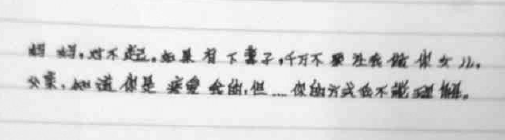 妈妈,对不起,如果有下辈子,千万不要让我做你女儿,
父亲,知道你是疼爱我的,但...你的方式我不能理解。